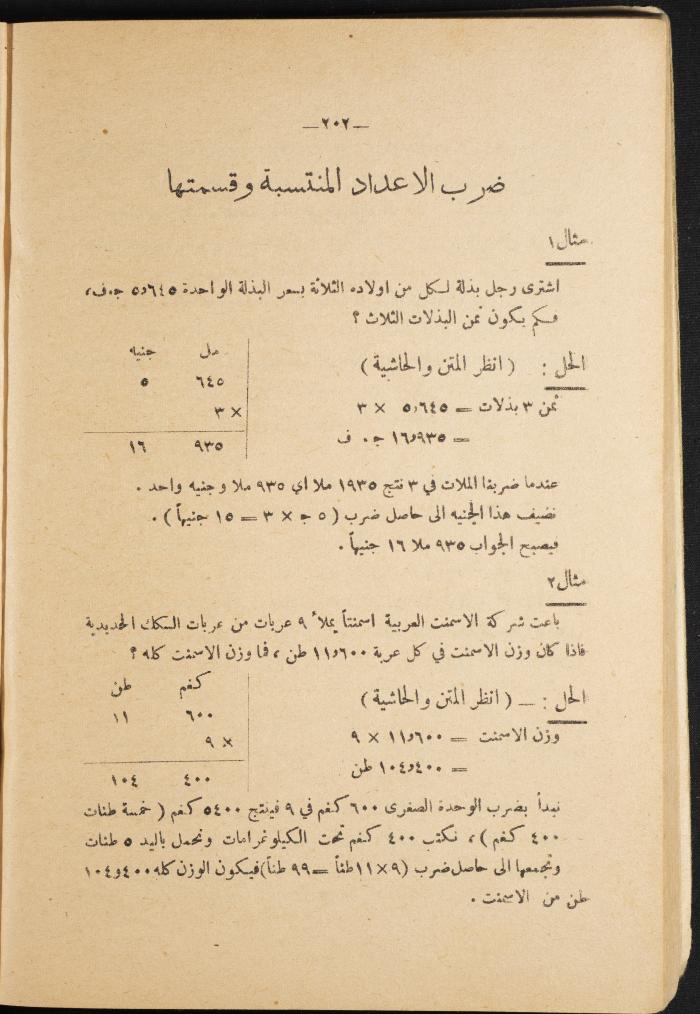 —٢٠٢—
ضرب الاعداد المنتسبة وقسمتها
مثال ١
اشترى رجل بذلة لكل من اولاده الثلاثة بسعر البذلة الواحدة ٥٫٦٤٥ ج.ف،
فكم يكون ثمن البذلات الثلاث ؟
الحل : ( انظر المتن والحاشية )
ثمن ٣ بذلات = ٥٫٦٤٥ × ٣
= ١٦٫٩٣٥ ج. ف
مل جنيه
٦٤٥ ٥
× ٣
٩٣٥ ١٦
عندما ضربنا الملات في ٣ نتج ١٩٣٥ ملا اي ٩٣٥ ملا وجنيه واحد .
نضيف هذا الجنيه الى حاصل ضرب ( ٥ ج × ٣ = ١٥ جنيهاً ) .
فيصبح الجواب ٩٣٥ ملا ١٦ جنيهاً .
مثال ٢
باعت شركة الاسمنت العربية اسمنتاً يملأ ٩ عربات من عربات السكك الحديدية
فاذا كان وزن الاسمنت في كل عربة ١١٫٦٠٠ طن ، فما وزن الاسمنت كله ؟
الحل : — ( انظر المتن والحاشية )
وزن الاسمنت = ١١٫٦٠٠ × ٩
= ١٠٤٫٤٠٠ طن
كغم طن
٦٠٠ ١١
× ٩
٤٠٠ ١٠٤
نبدأ بضرب الوحدة الصغرى ٦٠٠ كغم في ٩ فينتج ٥٤٠٠ كغم ( خمسة طنات
٤٠٠ كغم ) ، نكتب ٤٠٠ كغم تحت الكيلوغرامات ونحمل باليد ٥ طنات
ونجمعها الى حاصل ضرب (٩ × ١١ طناً = ٩٩ طناً) فيكون الوزن كله ١٠٤٫٤٠٠
طن من الاسمنت .